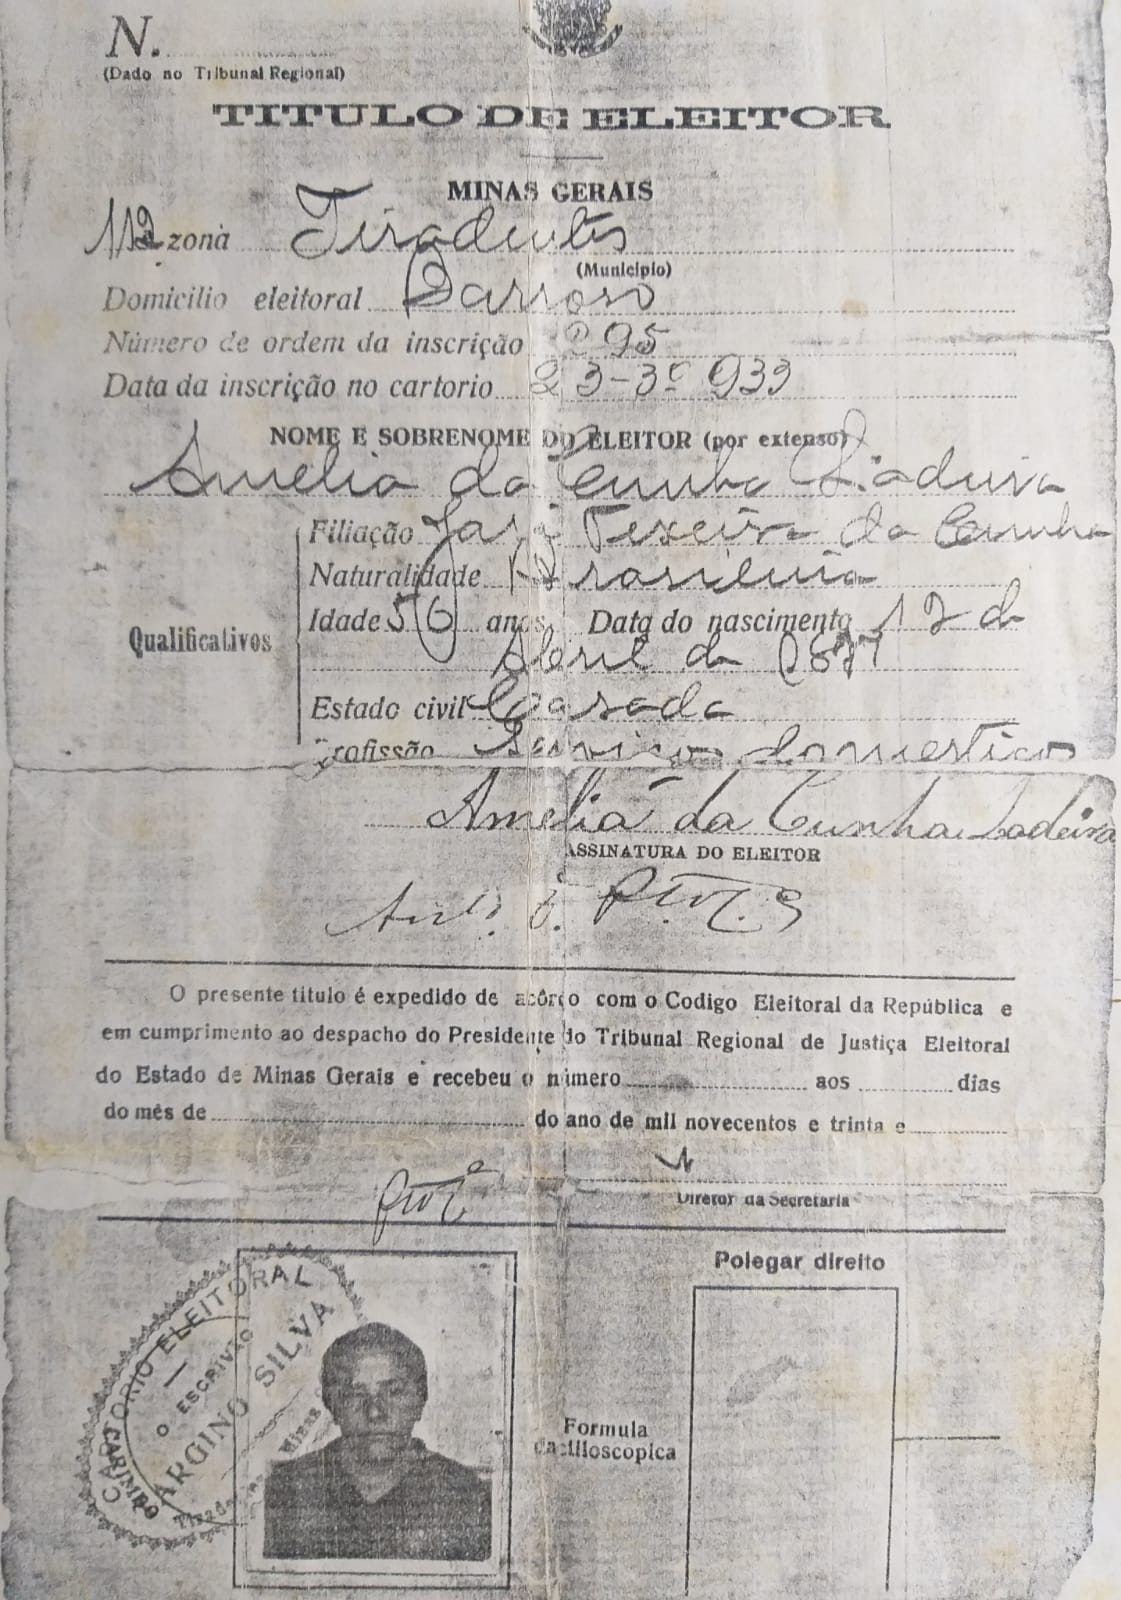 N.
(Dado no Tribunal Regional)
TITULO DE ELEITOR
MINAS GERAIS
112 zona Tiradentes
(Municipio)
Domicilio eleitoral Barroso
Número de ordem da inscrição 295
Data da inscrição no cartorio 23-3º 933
NOME E SOBRENOME DO ELEITOR (por extenso)
Amelia da Cunha Ladeira
Filiação José Texeira da Cunha
Naturalidade Brasileira
Idade 56 anos Data do nascimento 12 de
Qualificativos
Abril de 1877
Estado civil Casada
Profissão Serviços domesticos
Amelia da Cunha Ladeira
ASSINATURA DO ELEITOR
O presente titulo é expedido de acôrço com o Codigo Eleitoral da República e
em cumprimento ao despacho do Presidente do Tribunal Regional de Justiça Eleitoral
do Estado de Minas Gerais e recebeu o número aos dias
do mês de do ano de mil novecentos e trinta e
Diretor da Secretaria
Polegar direito
CARTORIO ELEITORAL
O ESCRIVÃO
ARGINO SILVA
Minas
Formula
dactiloscopica